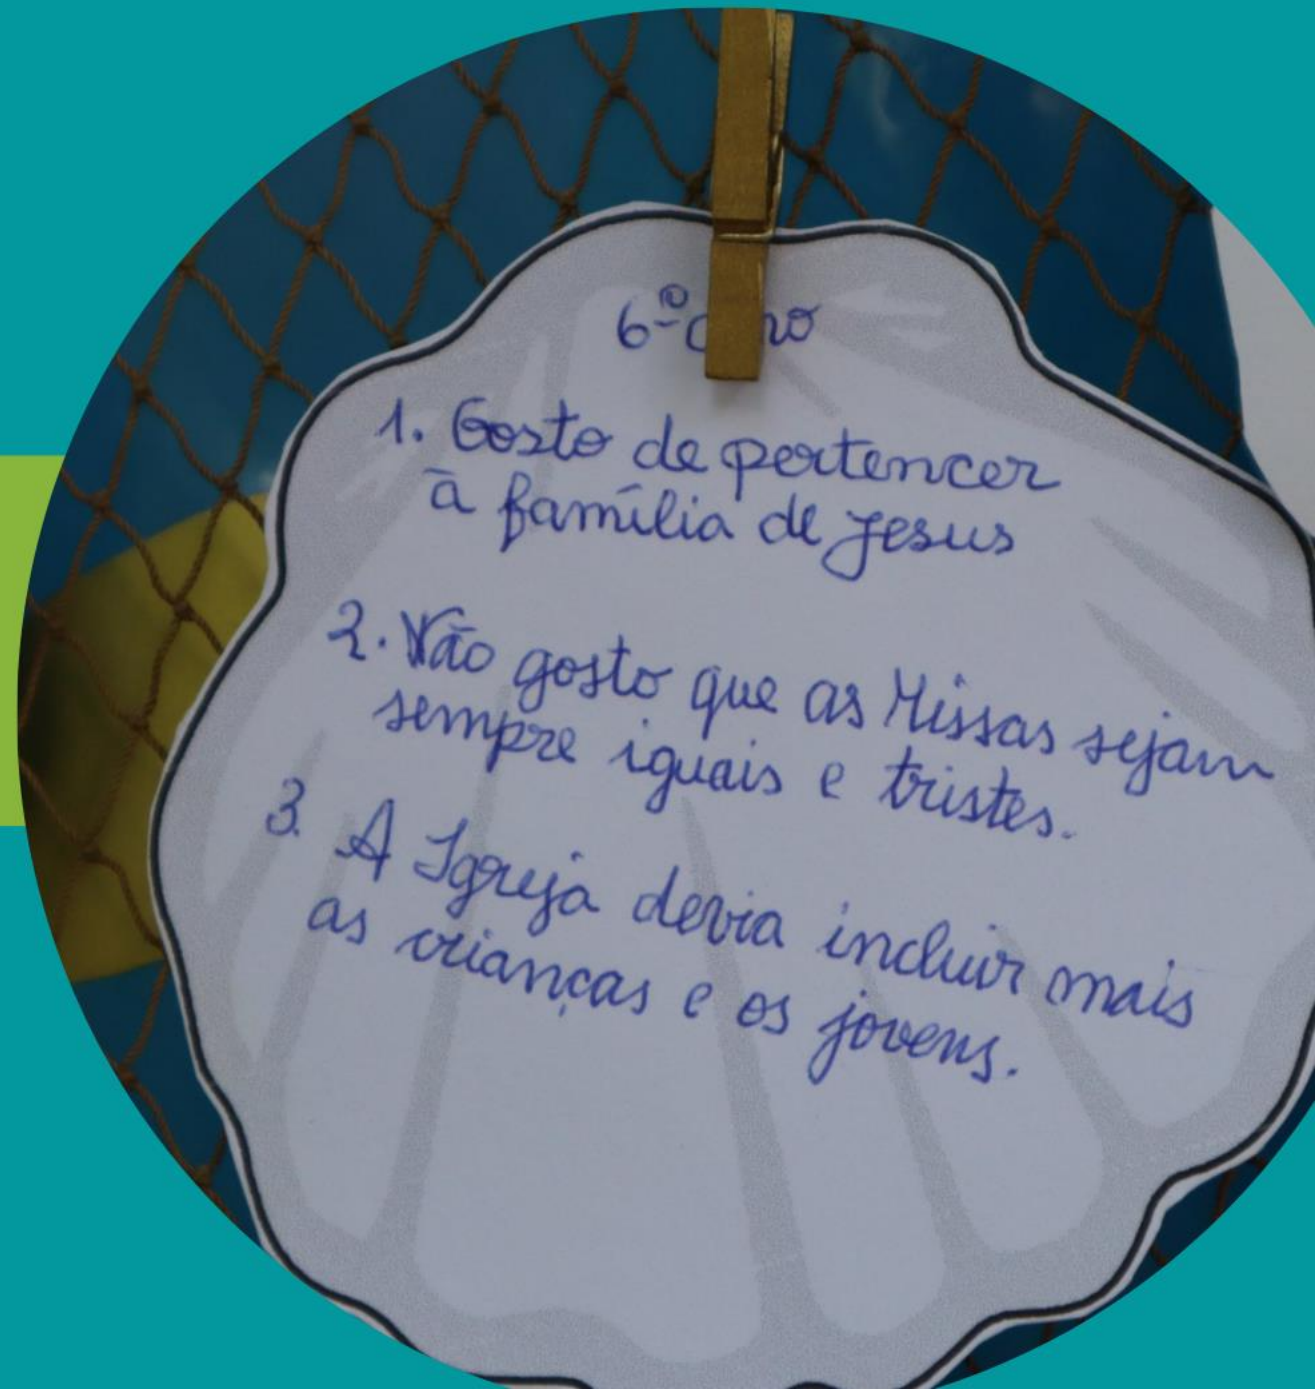 6º ano
1. Gosto de pertencer
à família de Jesus
2. Não gosto que as Missas sejam
sempre iguais e tristes.
3. A Igreja devia incluir mais
as crianças e os jovens.